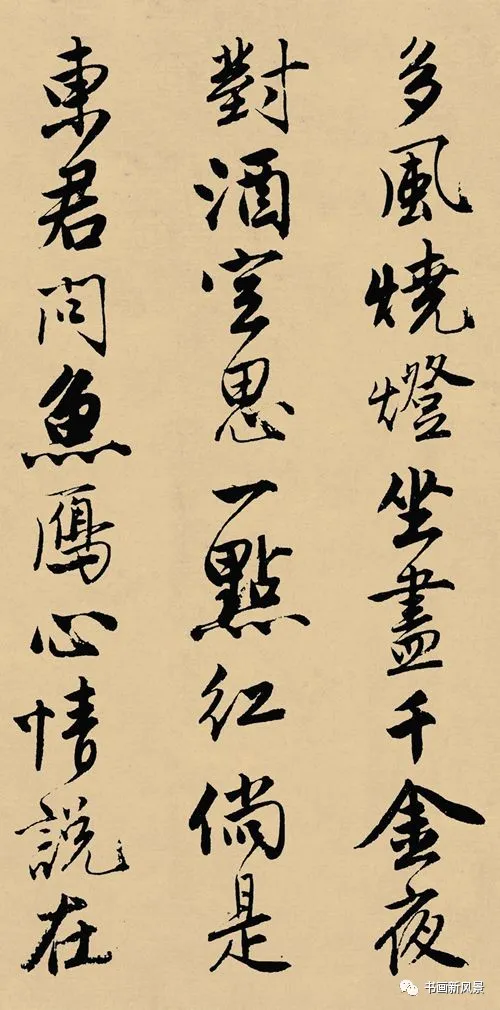 多風燒燈坐盡千金夜
對酒空思一點紅倘是
東君問魚雁心情說在
书画新风景